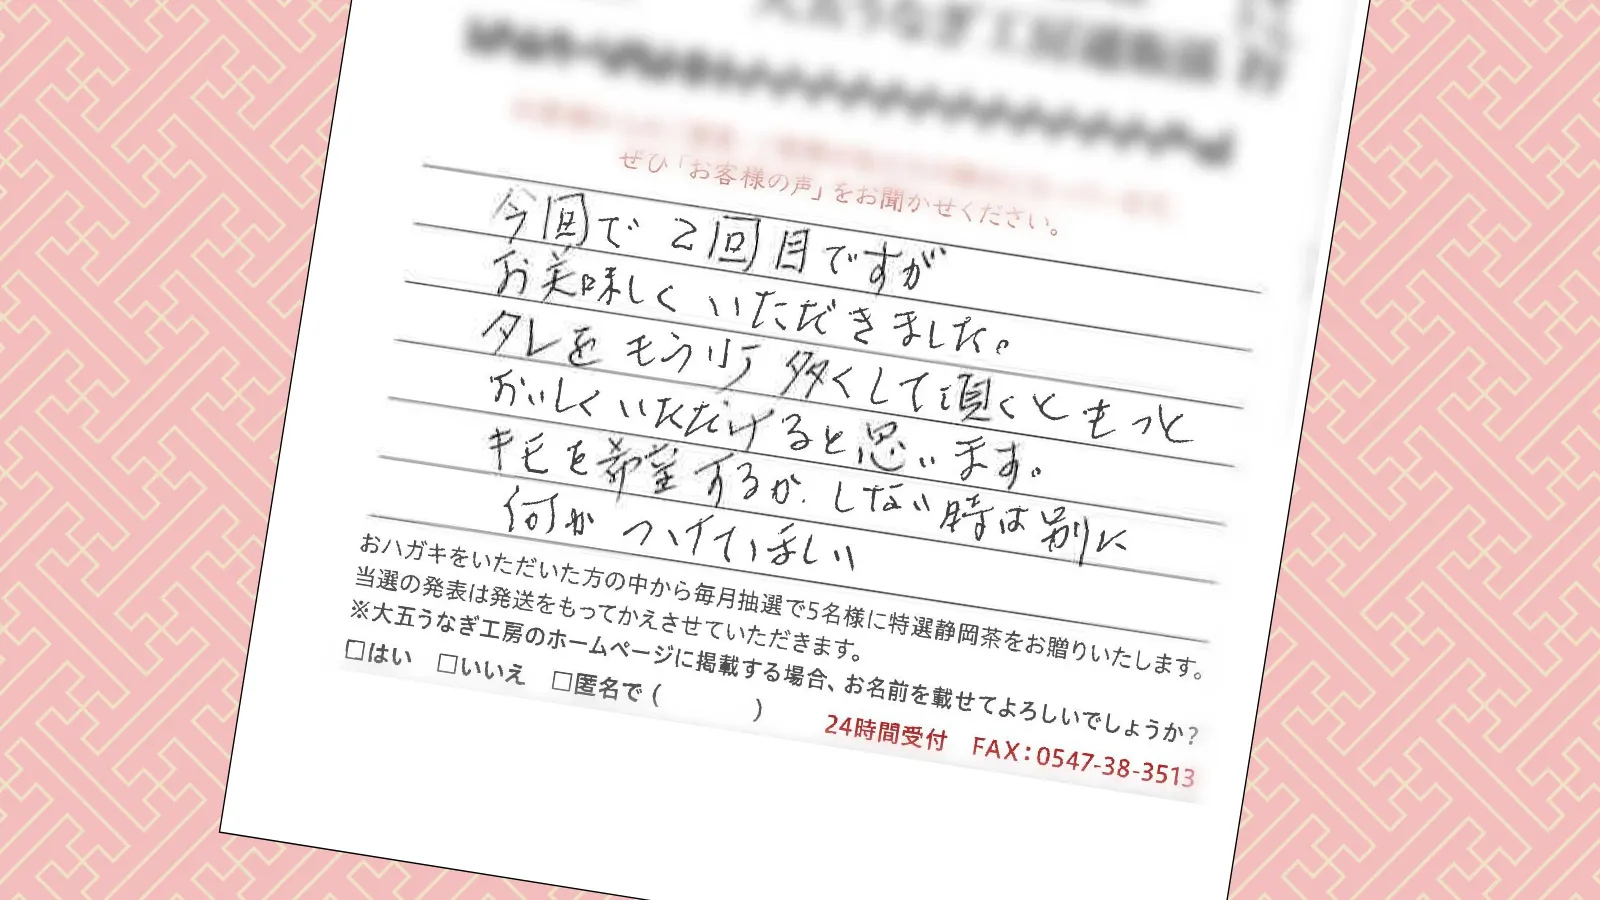 大五うなぎ工房通販係 行
ぜひ「お客様の声」をお聞かせください。
今回で 2回目ですが
お美味しくいただきました。
タレをもう少し多くして頂くともっと
おいしくいただけると思います。
キモを希望するが、しない時は別に
何か つけてほしい
おハガキをいただいた方の中から毎月抽選で5名様に特選静岡茶をお贈りいたします。
当選の発表は発送をもってかえさせていただきます。
※大五うなぎ工房のホームページに掲載する場合、お名前を載せてよろしいでしょうか?
□はい □いいえ □匿名で ( )
24時間受付 FAX:0547-38-3513